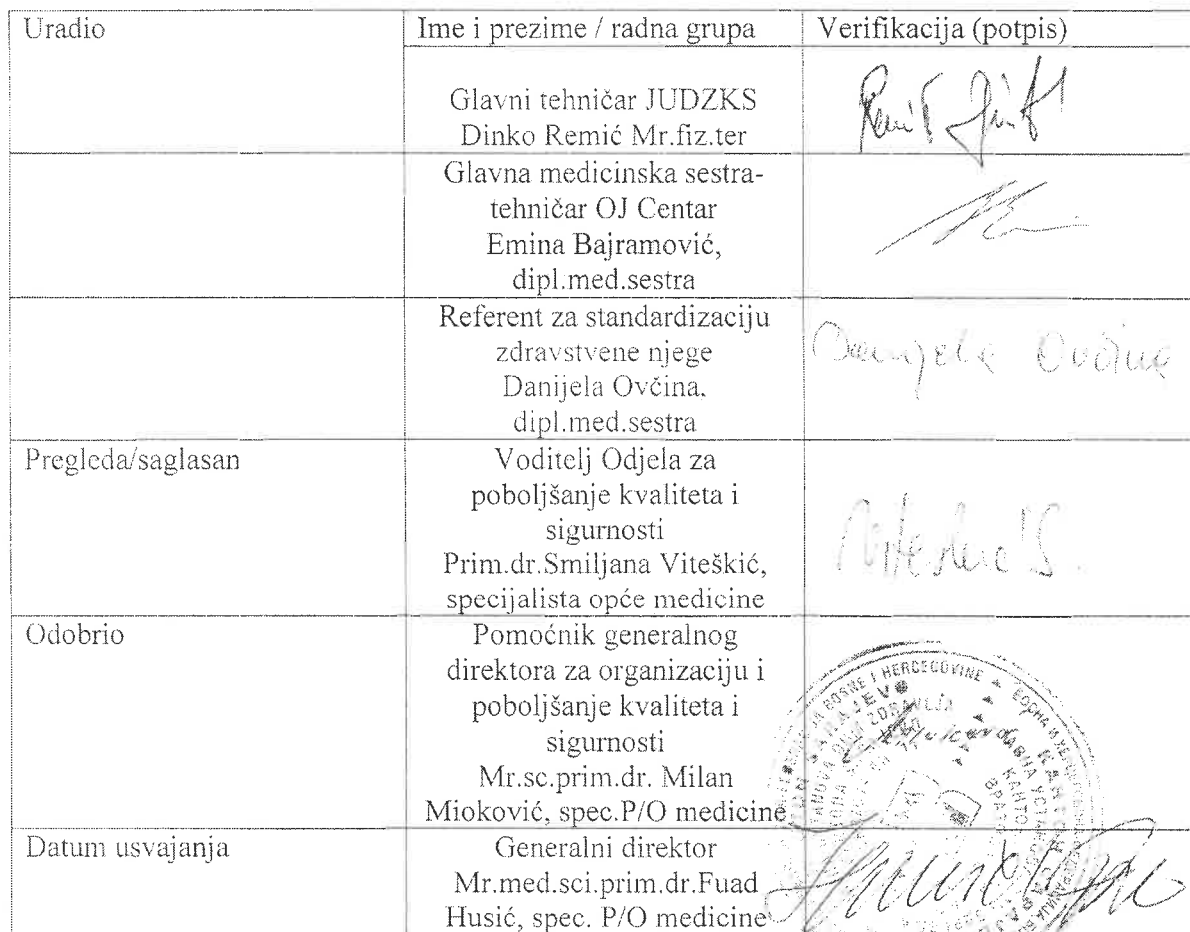 Uradio
Ime i prezime / radna grupa
Verifikacija (potpis)
Glavni tehničar JUDZKS
Dinko Remić Mr.fiz.ter
Glavna medicinska sestra-
tehničar OJ Centar
Emina Bajramović,
dipl.med.sestra
Referent za standardizaciju
zdravstvene njege
Danijela Ovčina,
dipl.med.sestra
Danijela Ovčina
Pregleda/saglasan
Voditelj Odjela za
poboljšanje kvaliteta i
sigurnosti
Prim.dr.Smiljana Viteškić,
specijalista opće medicine
Odobrio
Pomoćnik generalnog
direktora za organizaciju i
poboljšanje kvaliteta i
sigurnosti
Mr.sc.prim.dr. Milan
Mioković, spec.P/O medicine
BOSNE I HERCEGOVINE
SARAJEVO
DOM ZDRAVLJA
Datum usvajanja
Generalni direktor
Mr.med.sci.prim.dr.Fuad
Husić, spec. P/O medicine